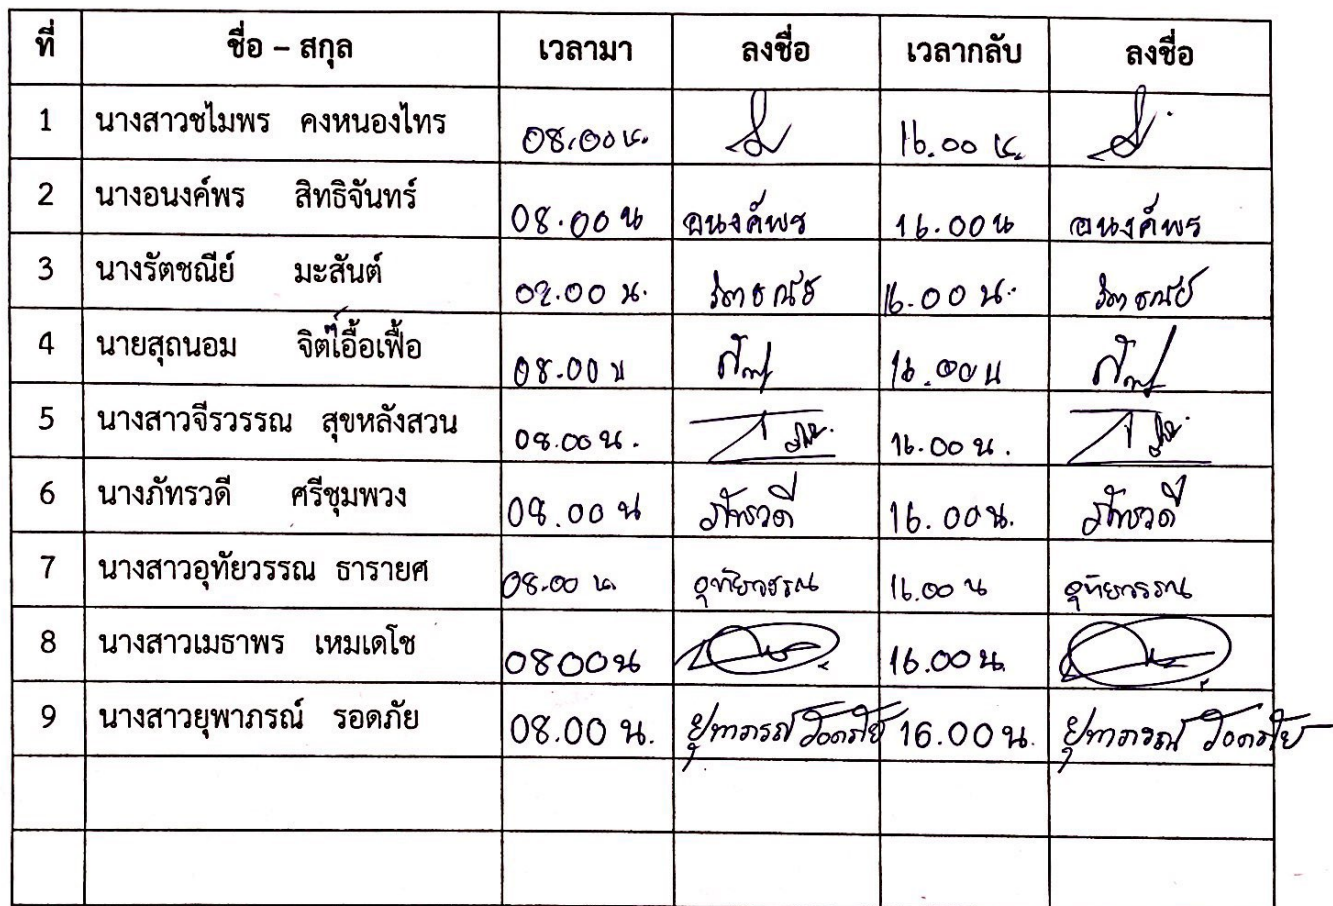 ที่ ชื่อ – สกุล เวลามา ลงชื่อ เวลากลับ ลงชื่อ
1 นางสาวชไมพร คงหนองไทร 08.00 น. 16.00 น.
2 นางอนงค์พร สิทธิจันทร์ 08.00 น อนงค์พร 16.00 น อนงค์พร
3 นางรัตชณีย์ มะสันต์ 08.00 น. รัตชณีย์ 16.00 น. รัตชณีย์
4 นายสุถนอม จิตไอื้อเฟื้อ 08.00 น 16.00 น
5 นางสาวจีรวรรณ สุขหลังสวน 08.00 น. 16.00 น.
6 นางภัทรวดี ศรีชุมพวง 08.00 น ภัทรวดี 16.00 น. ภัทรวดี
7 นางสาวอุทัยวรรณ ธารายศ 08.00 น. อุทัยวรรณ 16.00 น อุทัยวรรณ
8 นางสาวเมธาพร เหมเดโช 0800 น 16.00 น.
9 นางสาวยุพาภรณ์ รอดภัย 08.00 น. ยุพาภรณ์ รอดภัย 16.00 น. ยุพาภรณ์ รอดภัย